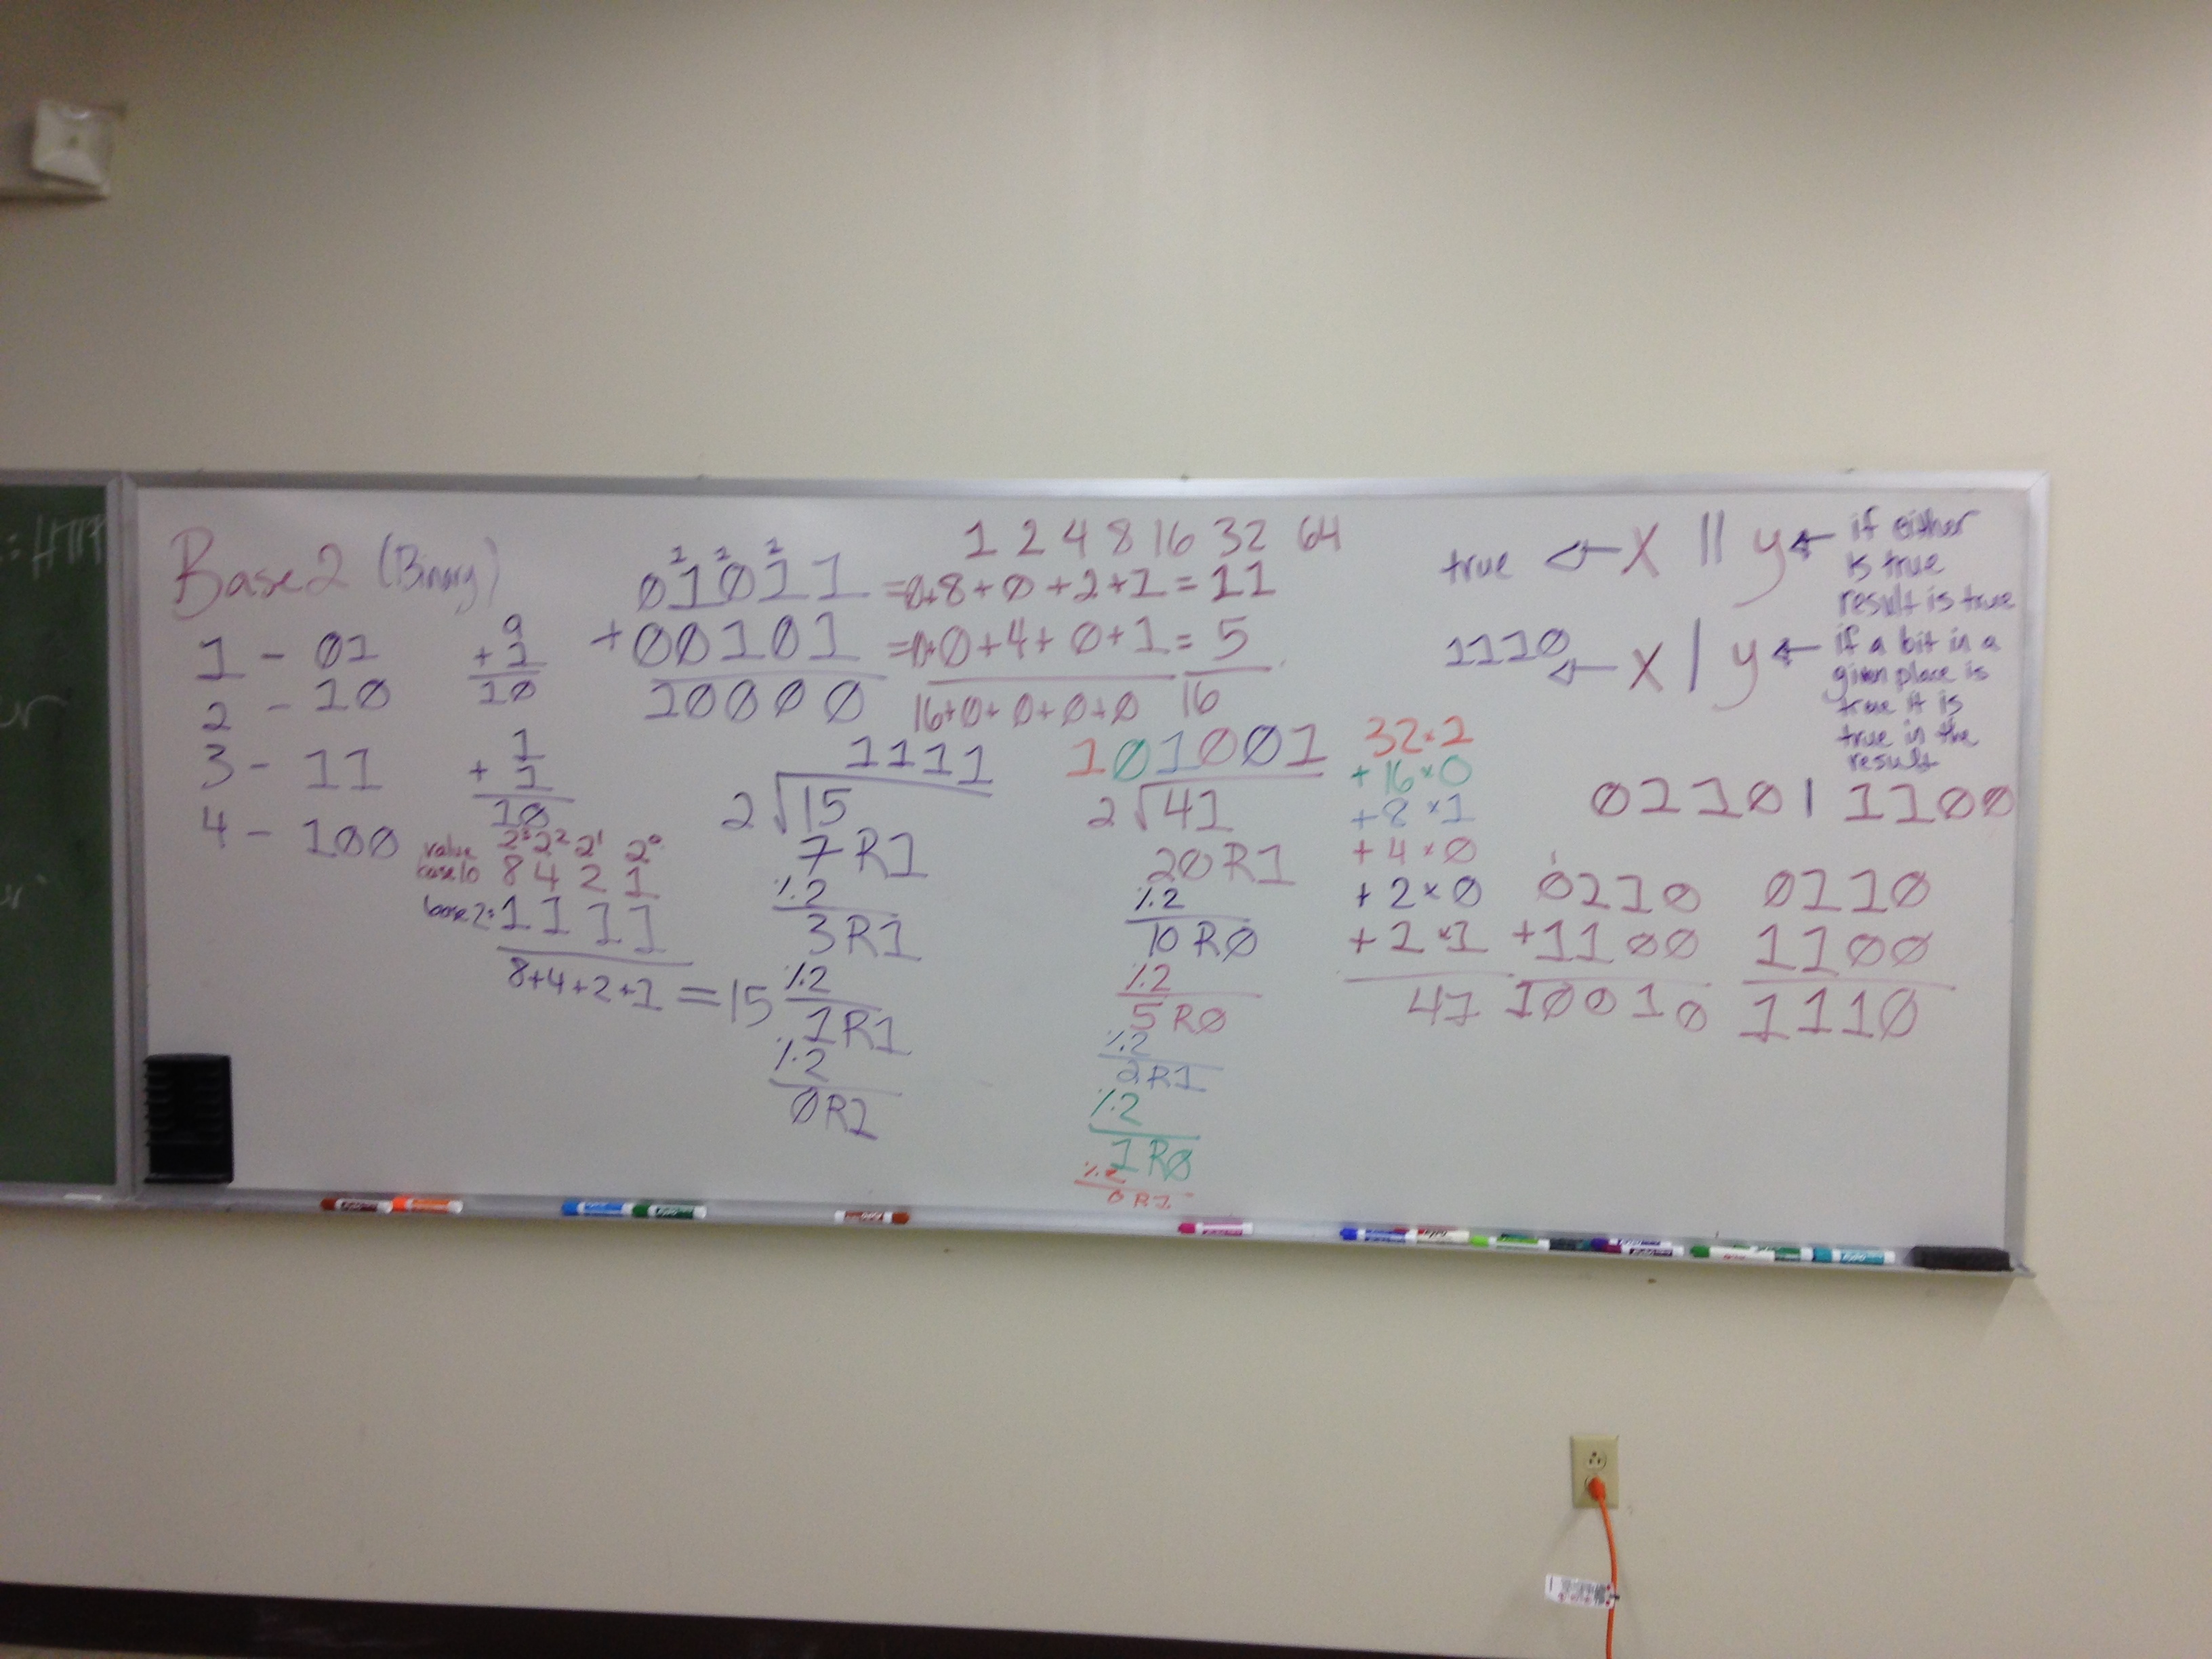 Base 2 (Binary)
1 - 01
2 - 10
3 - 11
4 - 100
9
+ 1
10
1
+ 1
10
value 2³ 2² 2¹ 2⁰
base 10 8 4 2 1
base 2: 1 1 1 1
8+4+2+1 = 15
1 1 1
01011
+00101
10000
1 2 4 8 16 32 64
=0+8+0+2+1=11
=0+0+4+0+1=5
16+0+0+0+0 16
1111
2√15
7 R1
%2
3 R1
%2
1 R1
%2
0 R1
101001
2√41
20 R1
%2
10 R0
%2
5 R0
%2
2 R1
%2
1 R0
%2
0 R1
32×1
+ 16×0
+ 8×1
+ 4×0
+ 2×0
+ 1×1
41
true ← x || y ← if either
is true
result is true
1110 ← x | y ← if a bit in a
given place is
true it is
true in the
result
0110 | 1100
1
0110
+1100
10010
0110
1100
1110